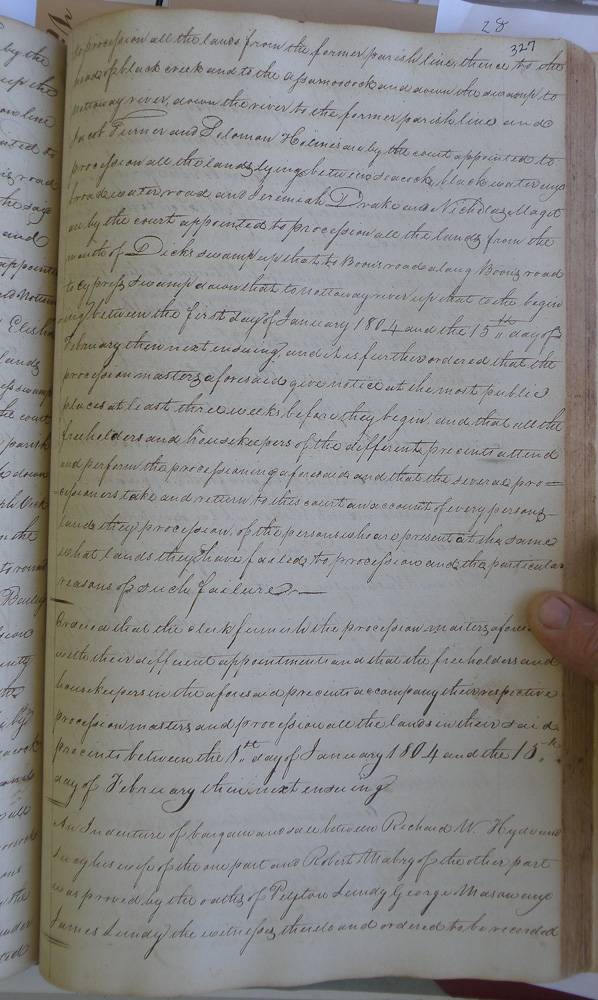 28
327
to procession all the lands from the former parish line, thence to the
head of black creek and to the assamoosock and down the swamp to
nottoway river, down the river to the former parish line and
Jacob Turner and Soloman Holmes are by the court appointed to
procession all the lands lying between seacock, black water and
broadwater road and Jeremiah Drake and Nicholas Maget
are by the court appointed to procession all the lands from the
mouth of Dicks swamp up that to Boons road along Boons road
to cypress swamp down that to nottoway river up that to the begin
ing between the first day of January 1804 and the 15th day of
February then next ensuing, and it is further ordered that the
procession masters aforesaid give notice at the most public
places at least three weeks before they begin, and that all the
freeholders and housekeepers of the different precints attend
and perform the processioning aforesaid and that the several pro=
cessioners take and return to this court an account of every persons
land they procession, of the persons who are present at the same
what lands they have failed to procession and the particular
reasons of such failure
Ordered that the clerk furnish the procession masters afore
with their different appointment and that the freeholders and
housekeepers in the aforesaid precints accompany their respective
procession masters and procession all the lands in their said
precints between the 1st day of January 1804 and the 15th
day of February then next ensuing
An Indenture of bargain and sale between Richard W. Hyde and
his wife of the one part and Robert Mabry of the other part
was proved by the oaths of Peyton Lundy George Mason and
James Lundy the witnesses thereto and ordered to be recorded